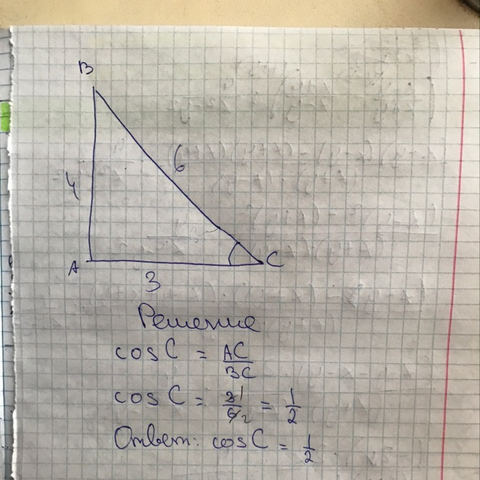 B
6
4
A
C
3
Решение
cosC = AC/BC
cosC = 3 1/6 2 = 1/2
Ответ: cosC = 1/2